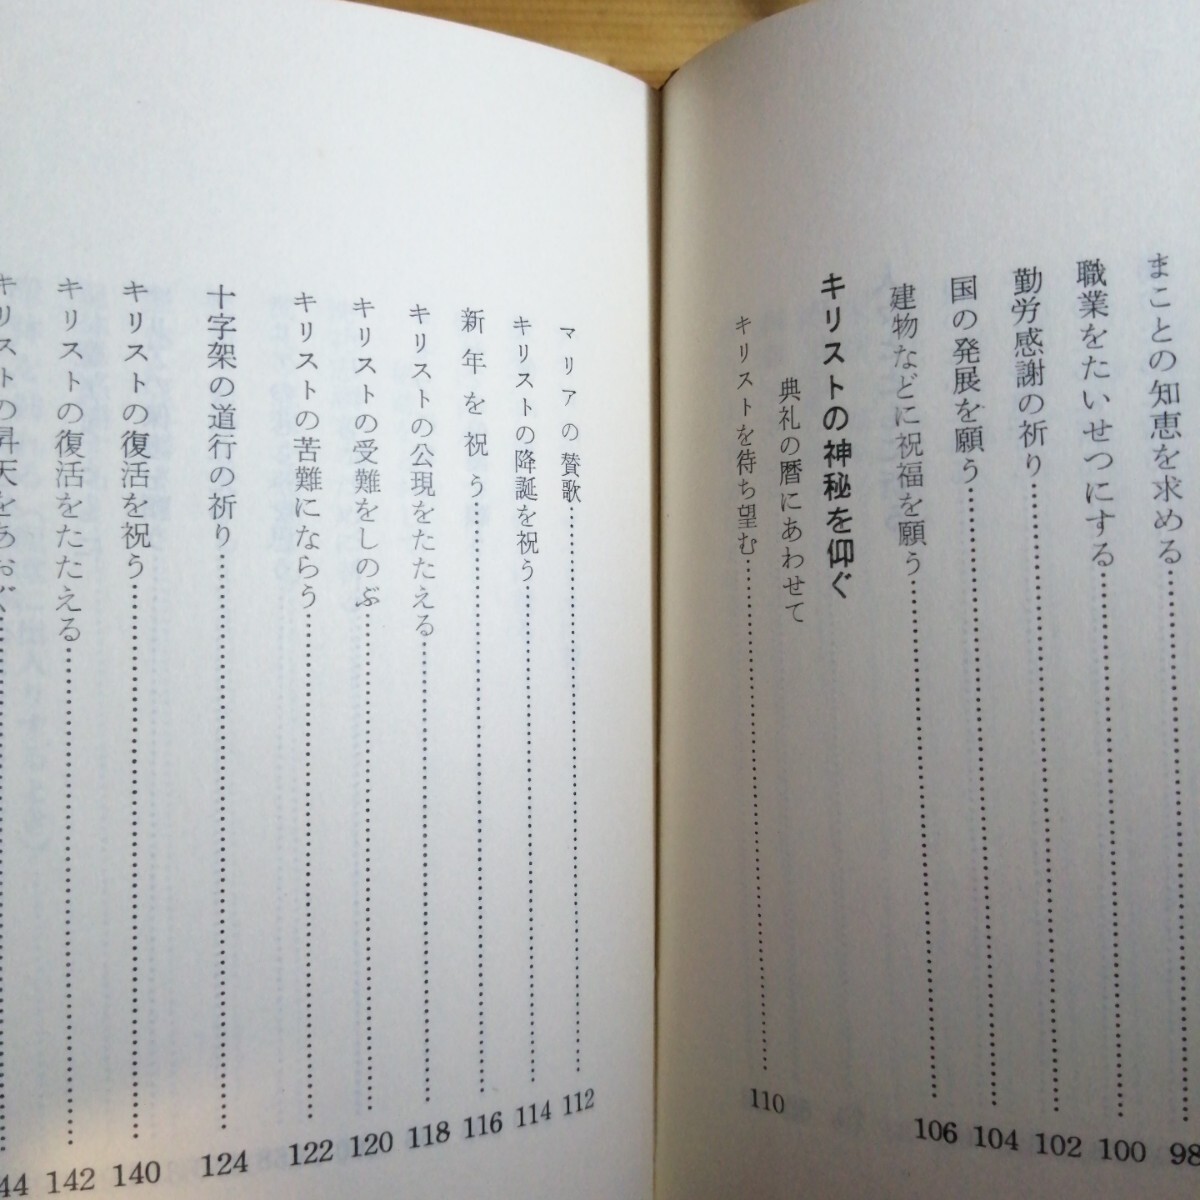 まことの知恵を求める…………98
職業をたいせつにする…………100
勤労感謝の祈り…………102
国の発展を願う…………104
建物などに祝福を願う…………106
キリストの神秘を仰ぐ
典礼の暦にあわせて
キリストを待ち望む…………110
マリアの賛歌…………112
キリストの降誕を祝う…………114
新年を祝う…………116
キリストの公現をたたえる…………118
キリストの受難をしのぶ…………120
キリストの苦難にならう…………122
十字架の道行の祈り…………124
キリストの復活を祝う…………140
キリストの復活をたたえる…………142
キリストの昇天をあおぐ…………44